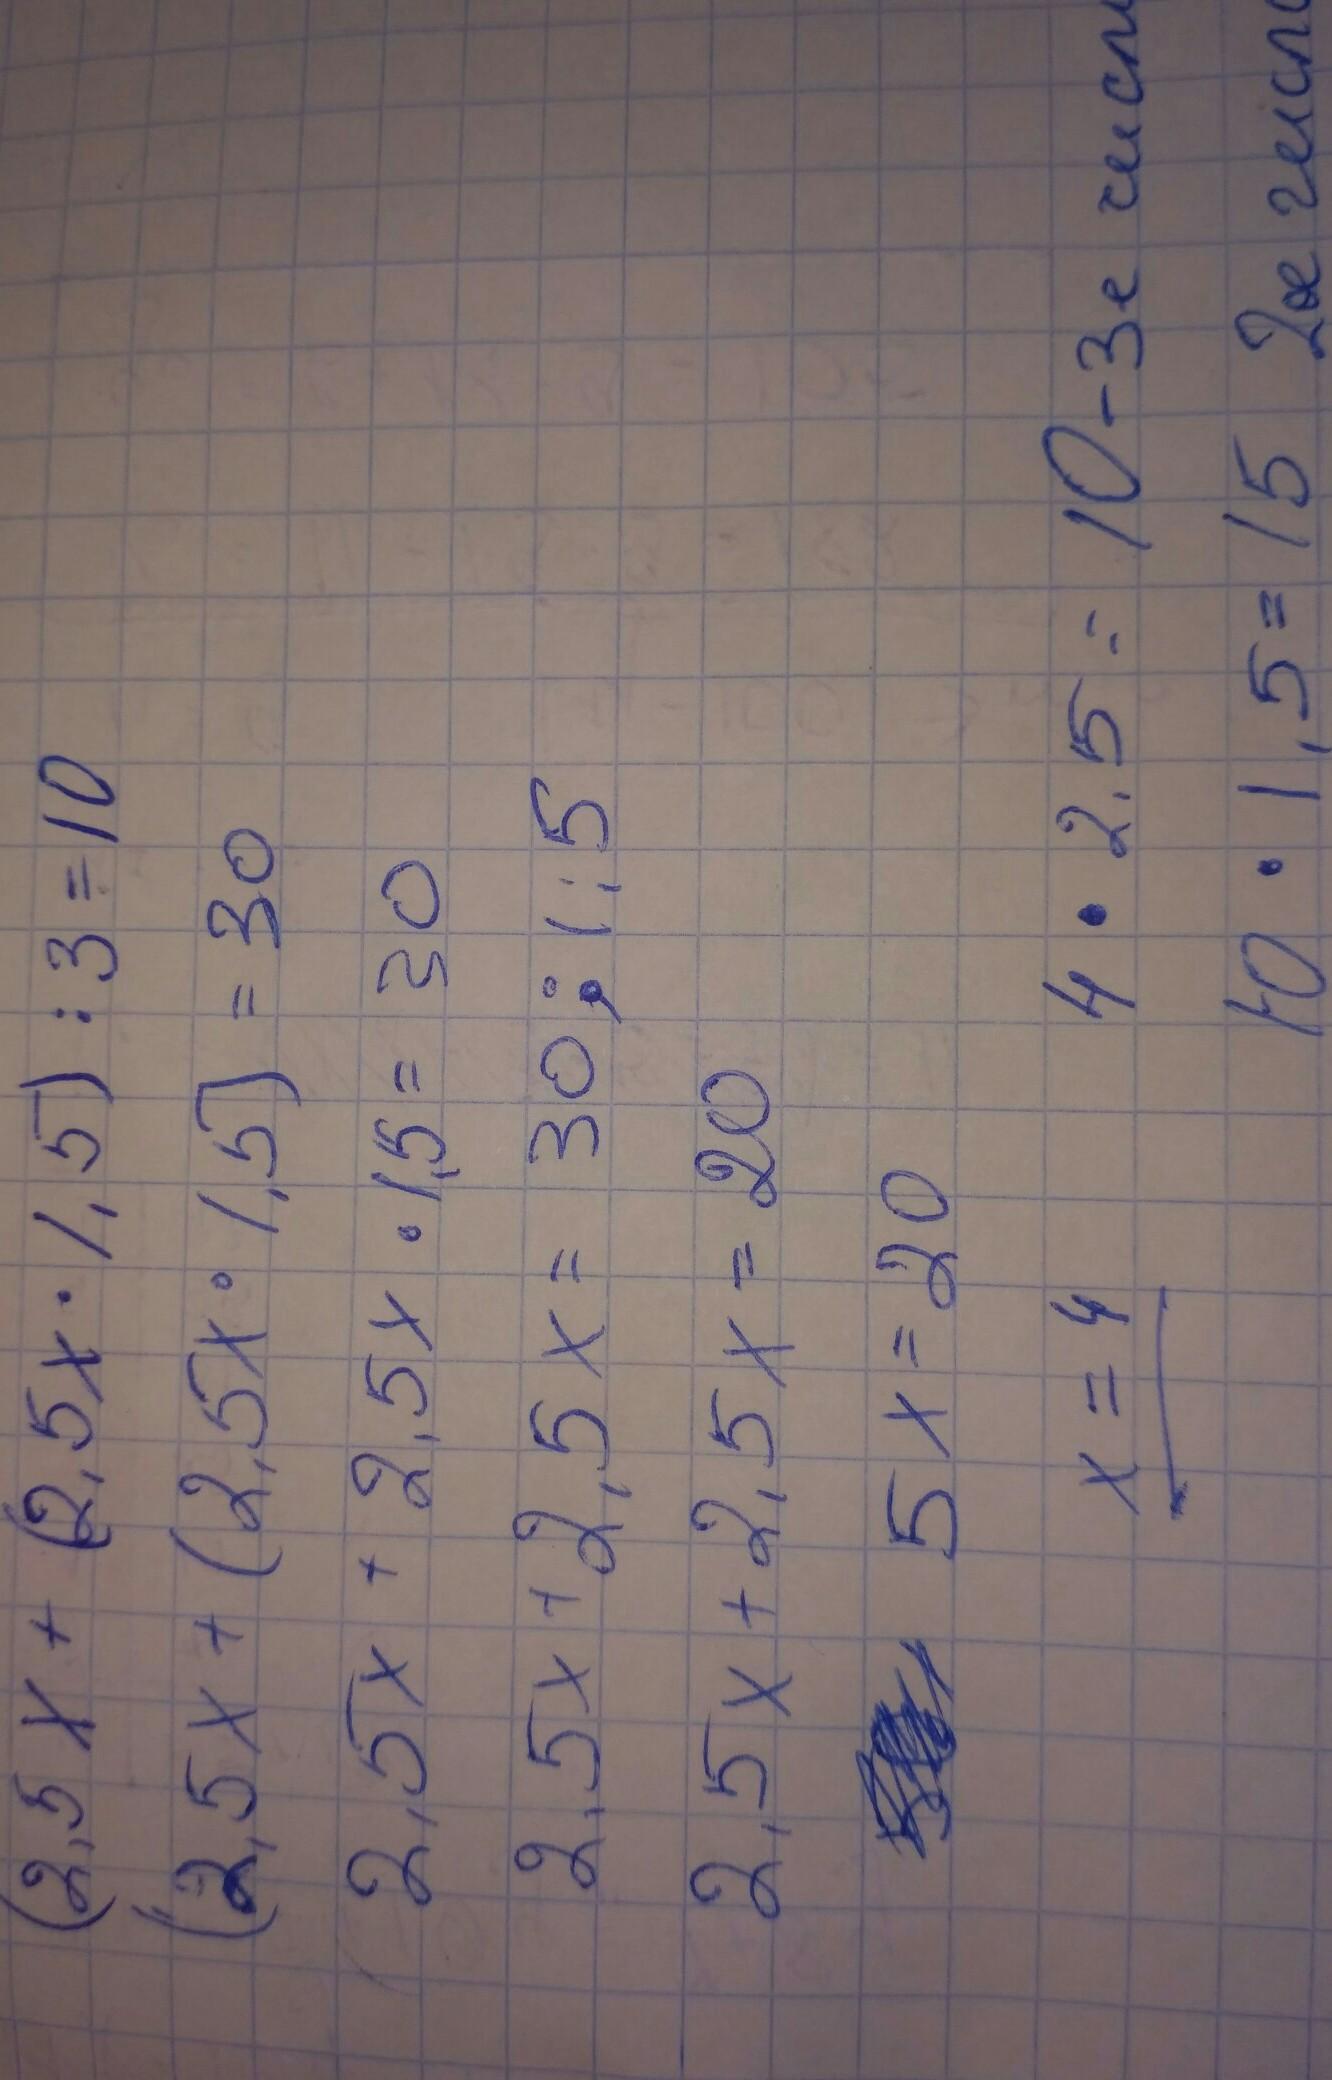 (2,5x + (2,5x · 1,5) : 3 = 10
(2,5x + (2,5x · 1,5) = 30
2,5x + 2,5x · 1,5 = 30
2,5x + 2,5x = 30 : 1,5
2,5x + 2,5x = 20
5x = 20
x = 4 4 · 2,5 = 10 - 3е
10 · 1,5 = 15 2ое